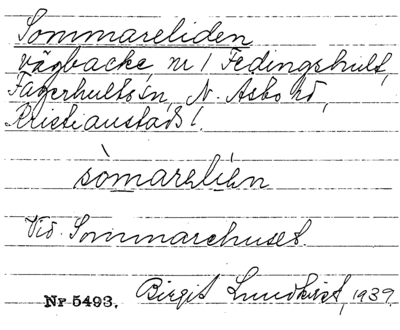 Sommareliden
vägbacke nr 1 Fedingshult,
Fagerhults sn, N. Åsbo hd,
Kristianstads l.
sòmarəlíən
Vid Sommarehuset.
Nr 5493. Birgit Lundkvist, 1939.